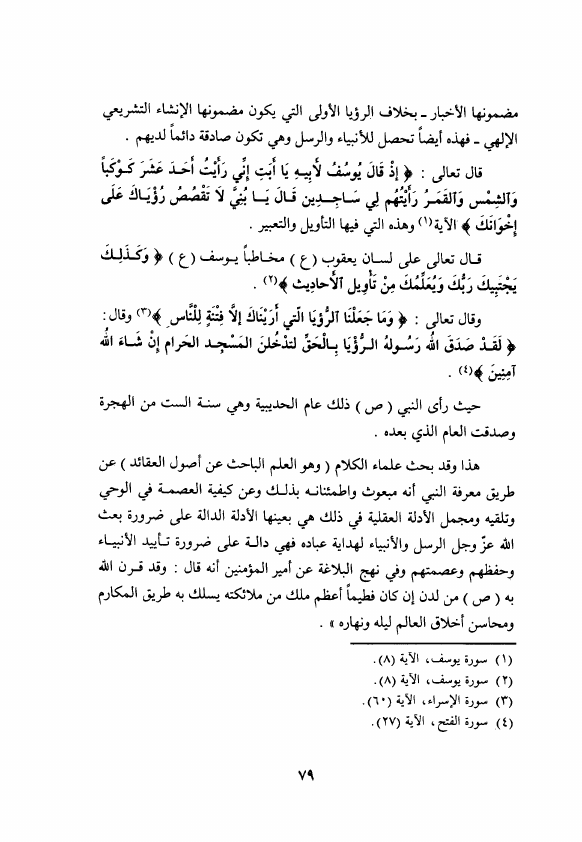 مضمونها الأخبار ـ بخلاف الرؤيا الأولى التي يكون مضمونها الإنشاء التشريعي
الإلهي ـ فهذه أيضاً تحصل للأنبياء والرسل وهي تكون صادقة دائماً لديهم .
قال تعالى : ﴿ إِذْ قَالَ يُوسُفُ لأَبِيهِ يَا أَبَتِ إِنِّي رَأَيْتُ أَحَدَ عَشَرَ كَوْكَباً
وَٱلشَّمْسَ وَٱلقَمَرَ رَأَيْتُهُم لِي سَاجِدِين قَالَ يَا بُنَيَّ لاَ تَقْصُصُ رُؤْيَاكَ عَلَى
إِخْوَانَكَ ﴾ الآية(١) وهذه التي فيها التأويل والتعبير .
قال تعالى على لسان يعقوب ( ع ) مخاطباً يوسف ( ع ) ﴿ وَكَذلِكَ
يَجْتَبِيكَ رَبُّكَ وَيُعَلِّمُكَ مِنْ تَأْوِيلِ الأَحادِيث ﴾(٢) .
وقال تعالى : ﴿ وَمَا جَعَلْنَا ٱلرُّؤيَا الّتي أَرَيْنَاكَ إلَّا فِتْنَةً لِلْنَّاسِ ﴾(٣) وقال :
﴿ لَقَدْ صَدَقَ اللهُ رَسُولهُ الرُّؤْيَا بِالْحَقِّ لتدْخُلنَ المَسْجِد الحَرام إنْ شَاءَ اللهُ
آمِنِينَ ﴾(٤) .
حيث رأى النبي ( ص ) ذلك عام الحديبية وهي سنة الست من الهجرة
وصدقت العام الذي بعده .
هذا وقد بحث علماء الكلام ( وهو العلم الباحث عن أصول العقائد ) عن
طريق معرفة النبي أنه مبعوث واطمئنانه بذلك وعن كيفية العصمة في الوحي
وتلقيه ومجمل الأدلة العقلية في ذلك هي بعينها الأدلة الدالة على ضرورة بعث
الله عزّ وجل الرسل والأنبياء لهداية عباده فهي دالة على ضرورة تأييد الأنبياء
وحفظهم وعصمتهم وفي نهج البلاغة عن أمير المؤمنين أنه قال : وقد قرن الله
به ( ص ) من لدن إن كان فطيماً أعظم ملك من ملائكته يسلك به طريق المكارم
ومحاسن أخلاق العالم ليله ونهاره » .
(١) سورة يوسف، الآية (٨).
(٢) سورة يوسف، الآية (٨).
(٣) سورة الإسراء، الآية (٦٠).
(٤) سورة الفتح، الآية (٢٧).
٧٩